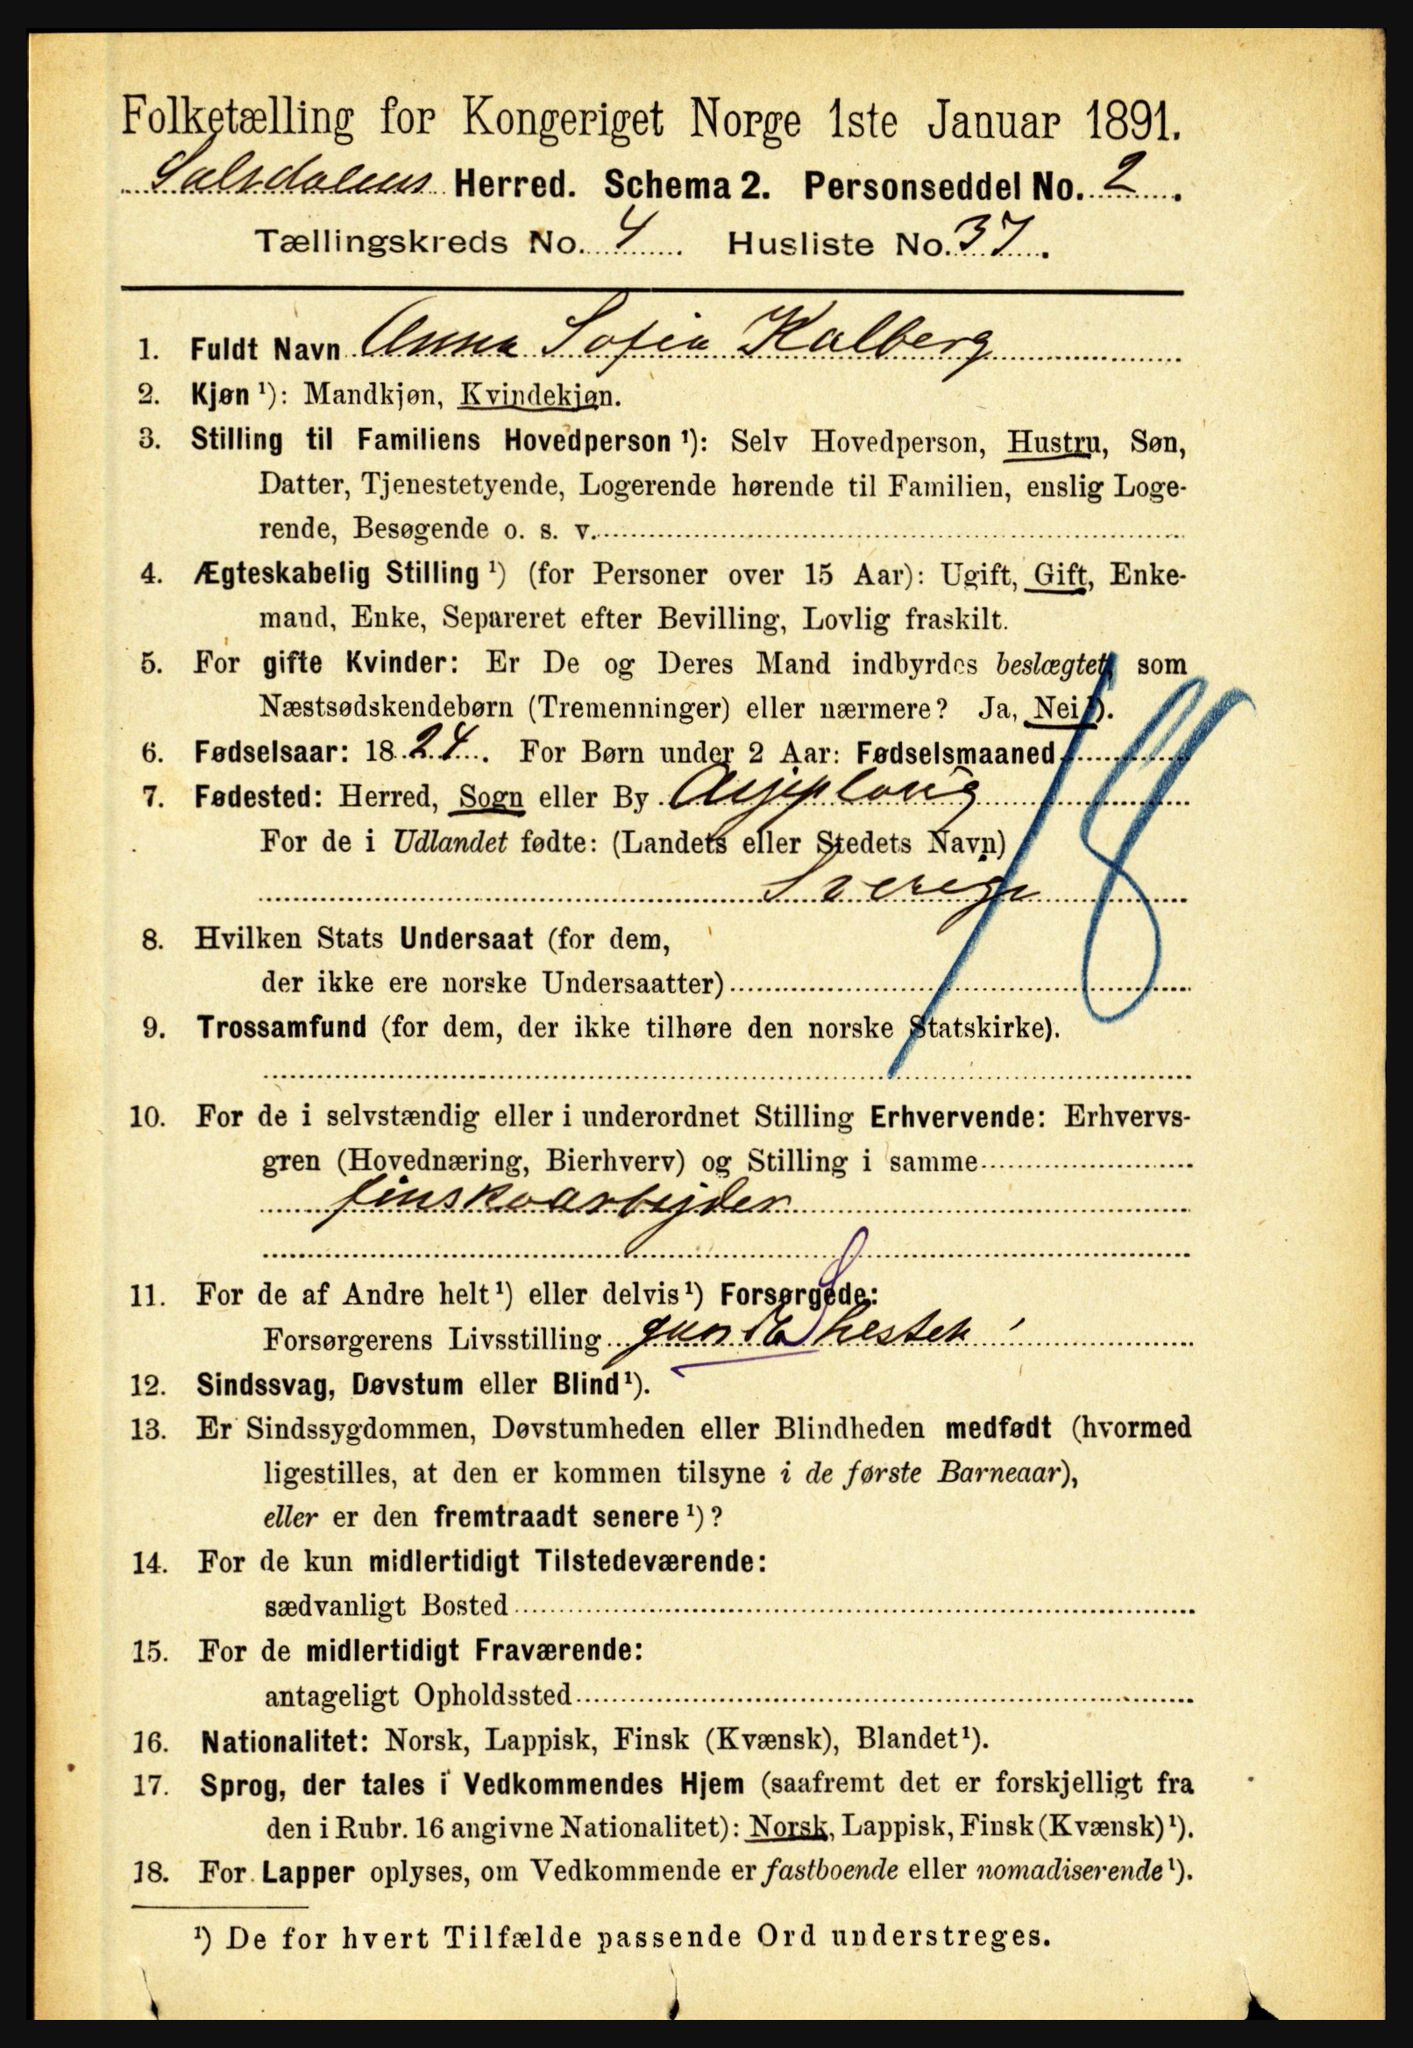 Folketælling for Kongeriget Norge 1ste Januar 1891.
Salsdalens Herred. Schema 2. Personseddel No. 2.
Tællingskreds No. 4. Husliste No. 37.
1. Fuldt Navn Anna Sofia Kalberg
2. Kjøn ¹): Mandkjøn, Kvindekjøn.
3. Stilling til Familiens Hovedperson ¹): Selv Hovedperson, Hustru, Søn,
Datter, Tjenestetyende, Logerende hørende til Familien, enslig Loge-
rende, Besøgende o. s. v.
4. Ægteskabelig Stilling ¹) (for Personer over 15 Aar): Ugift, Gift, Enke-
mand, Enke, Separeret efter Bevilling, Lovlig fraskilt.
5. For gifte Kvinder: Er De og Deres Mand indbyrdes beslægtet som
Næstsødskendebørn (Tremenninger) eller nærmere? Ja, Nei ¹).
6. Fødselsaar: 1824. For Børn under 2 Aar: Fødselsmaaned
7. Fødested: Herred, Sogn eller By Arjeploug
For de i Udlandet fødte: (Landets eller Stedets Navn)
Sverige
18
8. Hvilken Stats Undersaat (for dem,
der ikke ere norske Undersaatter)
9. Trossamfund (for dem, der ikke tilhøre den norske Statskirke).
10. For de i selvstændig eller i underordnet Stilling Erhvervende: Erhvervs-
gren (Hovednæring, Bierhverv) og Stilling i samme
finskoarbejder
11. For de af Andre helt ¹) eller delvis ¹) Forsørgede:
Forsørgerens Livsstilling
12. Sindssvag, Døvstum eller Blind ¹).
13. Er Sindssygdommen, Døvstumheden eller Blindheden medfødt (hvormed
ligestilles, at den er kommen tilsyne i de første Barneaar),
eller er den fremtraadt senere ¹)?
14. For de kun midlertidigt Tilstedeværende:
sædvanligt Bosted
15. For de midlertidigt Fraværende:
antageligt Opholdssted
16. Nationalitet: Norsk, Lappisk, Finsk (Kvænsk), Blandet ¹).
17. Sprog, der tales i Vedkommendes Hjem (saafremt det er forskjelligt fra
den i Rubr. 16 angivne Nationalitet): Norsk, Lappisk, Finsk (Kvænsk) ¹).
18. For Lapper oplyses, om Vedkommende er fastboende eller nomadiserende ¹).
¹) De for hvert Tilfælde passende Ord understreges.